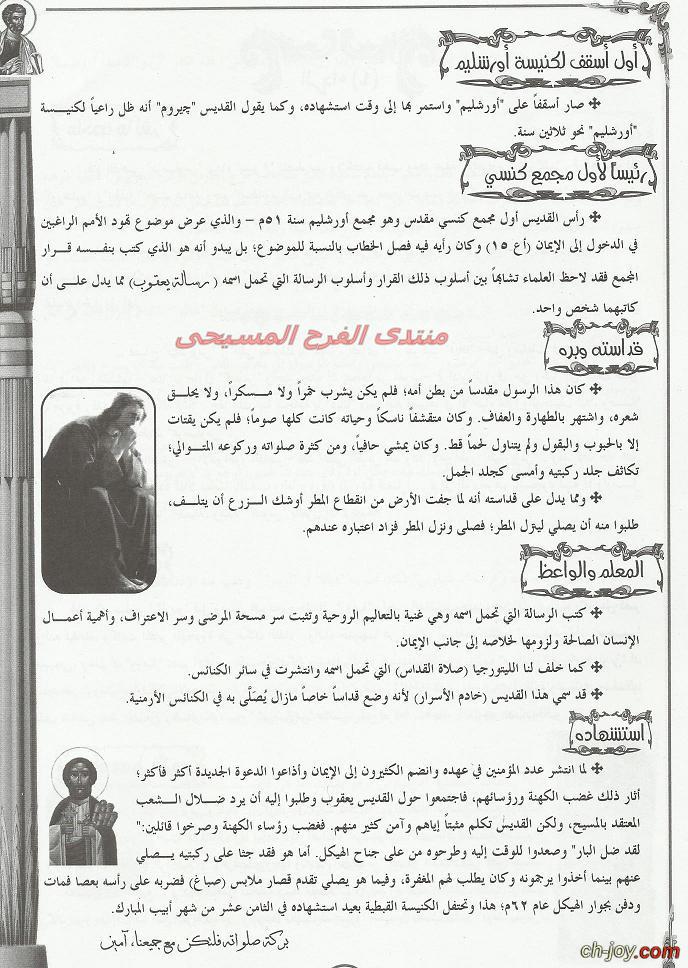 أول أسقف لكنيسة أورشليم
✤ صار أسقفاً على "أورشليم" واستمر بها إلى وقت استشهاده، وكما يقول القديس "چيروم" أنه ظل راعياً لكنيسة
"أورشليم" نحو ثلاثين سنة.
رئيساً لأول مجمع كنسي
✤ رأس القديس أول مجمع كنسي مقدس وهو مجمع أورشليم سنة ٥١م – والذي عرض موضوع تهود الأمم الراغبين
في الدخول إلى الإيمان (أع ١٥) وكان رأيه فيه فصل الخطاب بالنسبة للموضوع؛ بل يبدو أنه هو الذي كتب بنفسه قرار
المجمع فقد لاحظ العلماء تشابهاً بين أسلوب ذلك القرار وأسلوب الرسالة التي تحمل اسمه (رسالة يعقوب) مما يدل على أن
كاتبهما شخص واحد.
منتدى الفرح المسيحى
قداسته وبره
✤ كان هذا الرسول مقدساً من بطن أمه؛ فلم يكن يشرب خمراً ولا مسكراً، ولا يحلق
شعره، واشتهر بالطهارة والعفاف. وكان متقشفاً ناسكاً وحياته كانت كلها صوماً؛ فلم يكن يقتات
إلا بالحبوب والبقول ولم يتناول لحماً قط. وكان يمشي حافياً، ومن كثرة صلواته وركوعه المتوالي؛
تكاثف جلد ركبتيه وأمسى كجلد الجمل.
✤ ومما يدل على قداسته أنه لما جفت الأرض من انقطاع المطر أوشك الزرع أن يتلف،
طلبوا منه أن يصلي لينزل المطر؛ فصلى ونزل المطر فزاد اعتباره عندهم.
المعلم والواعظ
✤ كتب الرسالة التي تحمل اسمه وهي غنية بالتعاليم الروحية وتثبت سر مسحة المرضى وسر الاعتراف، وأهمية أعمال
الإنسان الصالحة ولزومها لخلاصه إلى جانب الإيمان.
✤ كما خلف لنا الليتورجيا (صلاة القداس) التي تحمل اسمه وانتشرت في سائر الكنائس.
✤ قد سمي هذا القديس (خادم الأسرار) لأنه وضع قداساً خاصاً مازال يُصَلَّى به في الكنائس الأرمنية.
استشهاده
✤ لما انتشر عدد المؤمنين في عهده وانضم الكثيرون إلى الإيمان وأذاعوا الدعوة الجديدة أكثر فأكثر؛
أثار ذلك غضب الكهنة ورؤسائهم، فاجتمعوا حول القديس يعقوب وطلبوا إليه أن يرد ضلال الشعب
المعتقد بالمسيح، ولكن القديس تكلم مثبتاً إياهم وآمن كثير منهم. فغضب رؤساء الكهنة وصرخوا قائلين:"
لقد ضل البار" وصعدوا للوقت إليه وطرحوه من على جناح الهيكل. أما هو فقد جثا على ركبتيه يصلي
عنهم بينما أخذوا يرجمونه وكان يطلب لهم المغفرة، وفيما هو يصلي تقدم قصار ملابس (صباغ) فضربه على رأسه بعصا فمات
ودفن بجوار الهيكل عام ٦٢م؛ هذا وتحتفل الكنيسة القبطية بعيد استشهاده في الثامن عشر من شهر أبيب المبارك.
بركة صلواته فلتكن مع جميعنا، آمين
ch-joy.com